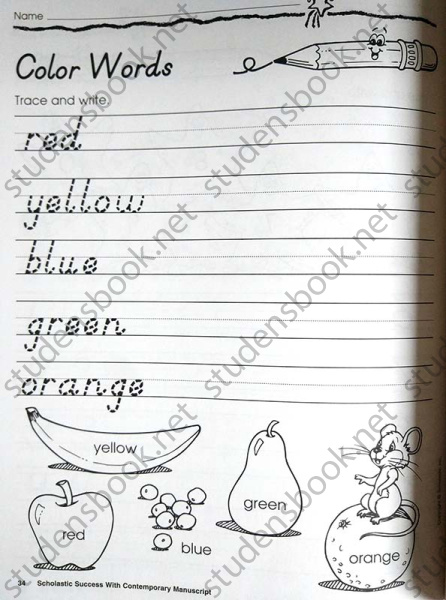 Name
Color Words
Trace and write.
red
yellow
blue
green
orange
yellow
green
red
blue
orange
34 Scholastic Success With Contemporary Manuscript
studensbook.net
studensbook.net
studensbook.net
studensbook.net
studensbook.net
studensbook.net
studensbook.net
studensbook.net
studensbook.net